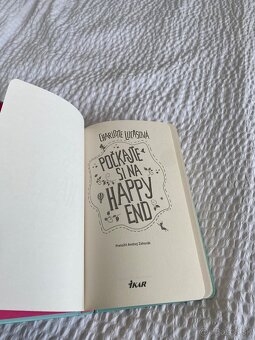 CHARLOTTE LUCASOVÁ
POČKAJTE
SI NA
HAPPY
END
Preložil Andrej Zahorák
IKAR